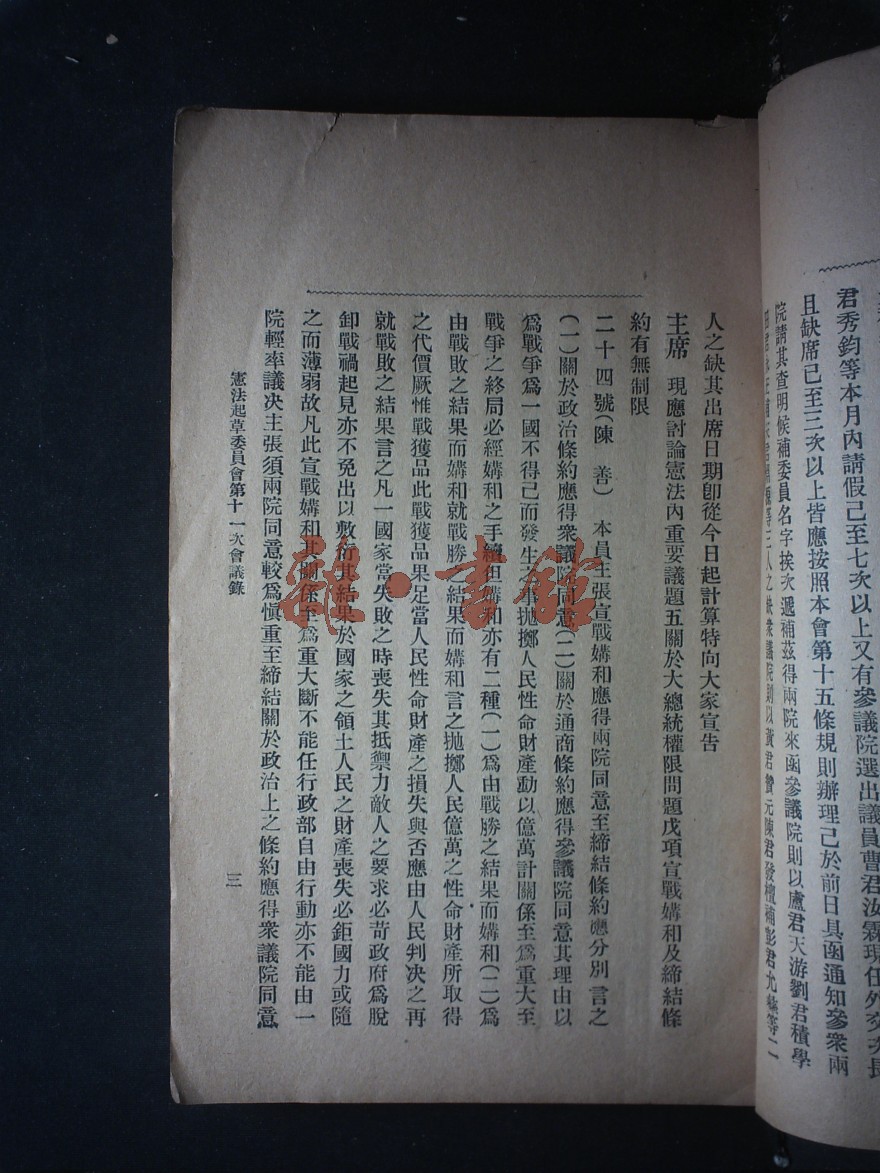 君秀鈞等本月內請假已至七次以上又有參議院選出議員曹君汝霖現任外交次長
且缺席已至三次以上皆應按照本會第十五條規則辦理已於前日具函通知參衆兩
院請其查明候補委員名字挨次遞補茲得兩院來函參議院則以盧君天游劉君積學
等三人之缺衆議院則以黃君贊元陳君發檀補彭君允彝等二
人之缺其出席日期卽從今日起計算特向大家宣告
主席　現應討論憲法內重要議題五關於大總統權限問題戊項宣戰媾和及締結條
約有無制限
二十四號（陳　善）　本員主張宣戰媾和應得兩院同意至締結條約應分別言之
（一）關於政治條約應得衆議院同意（二）關於通商條約應得參議院同意其理由以
爲戰爭爲一國不得已而發生之事拋擲人民性命財產動以億萬計關係至爲重大至
戰爭之終局必經媾和之手續但媾和亦有二種（一）爲由戰勝之結果而媾和（二）爲
由戰敗之結果而媾和就戰勝之結果而媾和言之拋擲人民億萬之性命財產所取得
之代價厥惟戰獲品此戰獲品果足當人民性命財產之損失與否應由人民判决之再
就戰敗之結果言之凡一國家當失敗之時喪失其抵禦力敵人之要求必苛政府爲脫
卸戰禍起見亦不免出以敷衍其結果於國家之領土人民之財產喪失必鉅國力或隨
之而薄弱故凡此宣戰媾和其關係至爲重大斷不能任行政部自由行動亦不能由一
院輕率議决主張須兩院同意較爲愼重至締結關於政治上之條約應得衆議院同意
憲法起草委員會第十一次會議錄
三
雜·書館